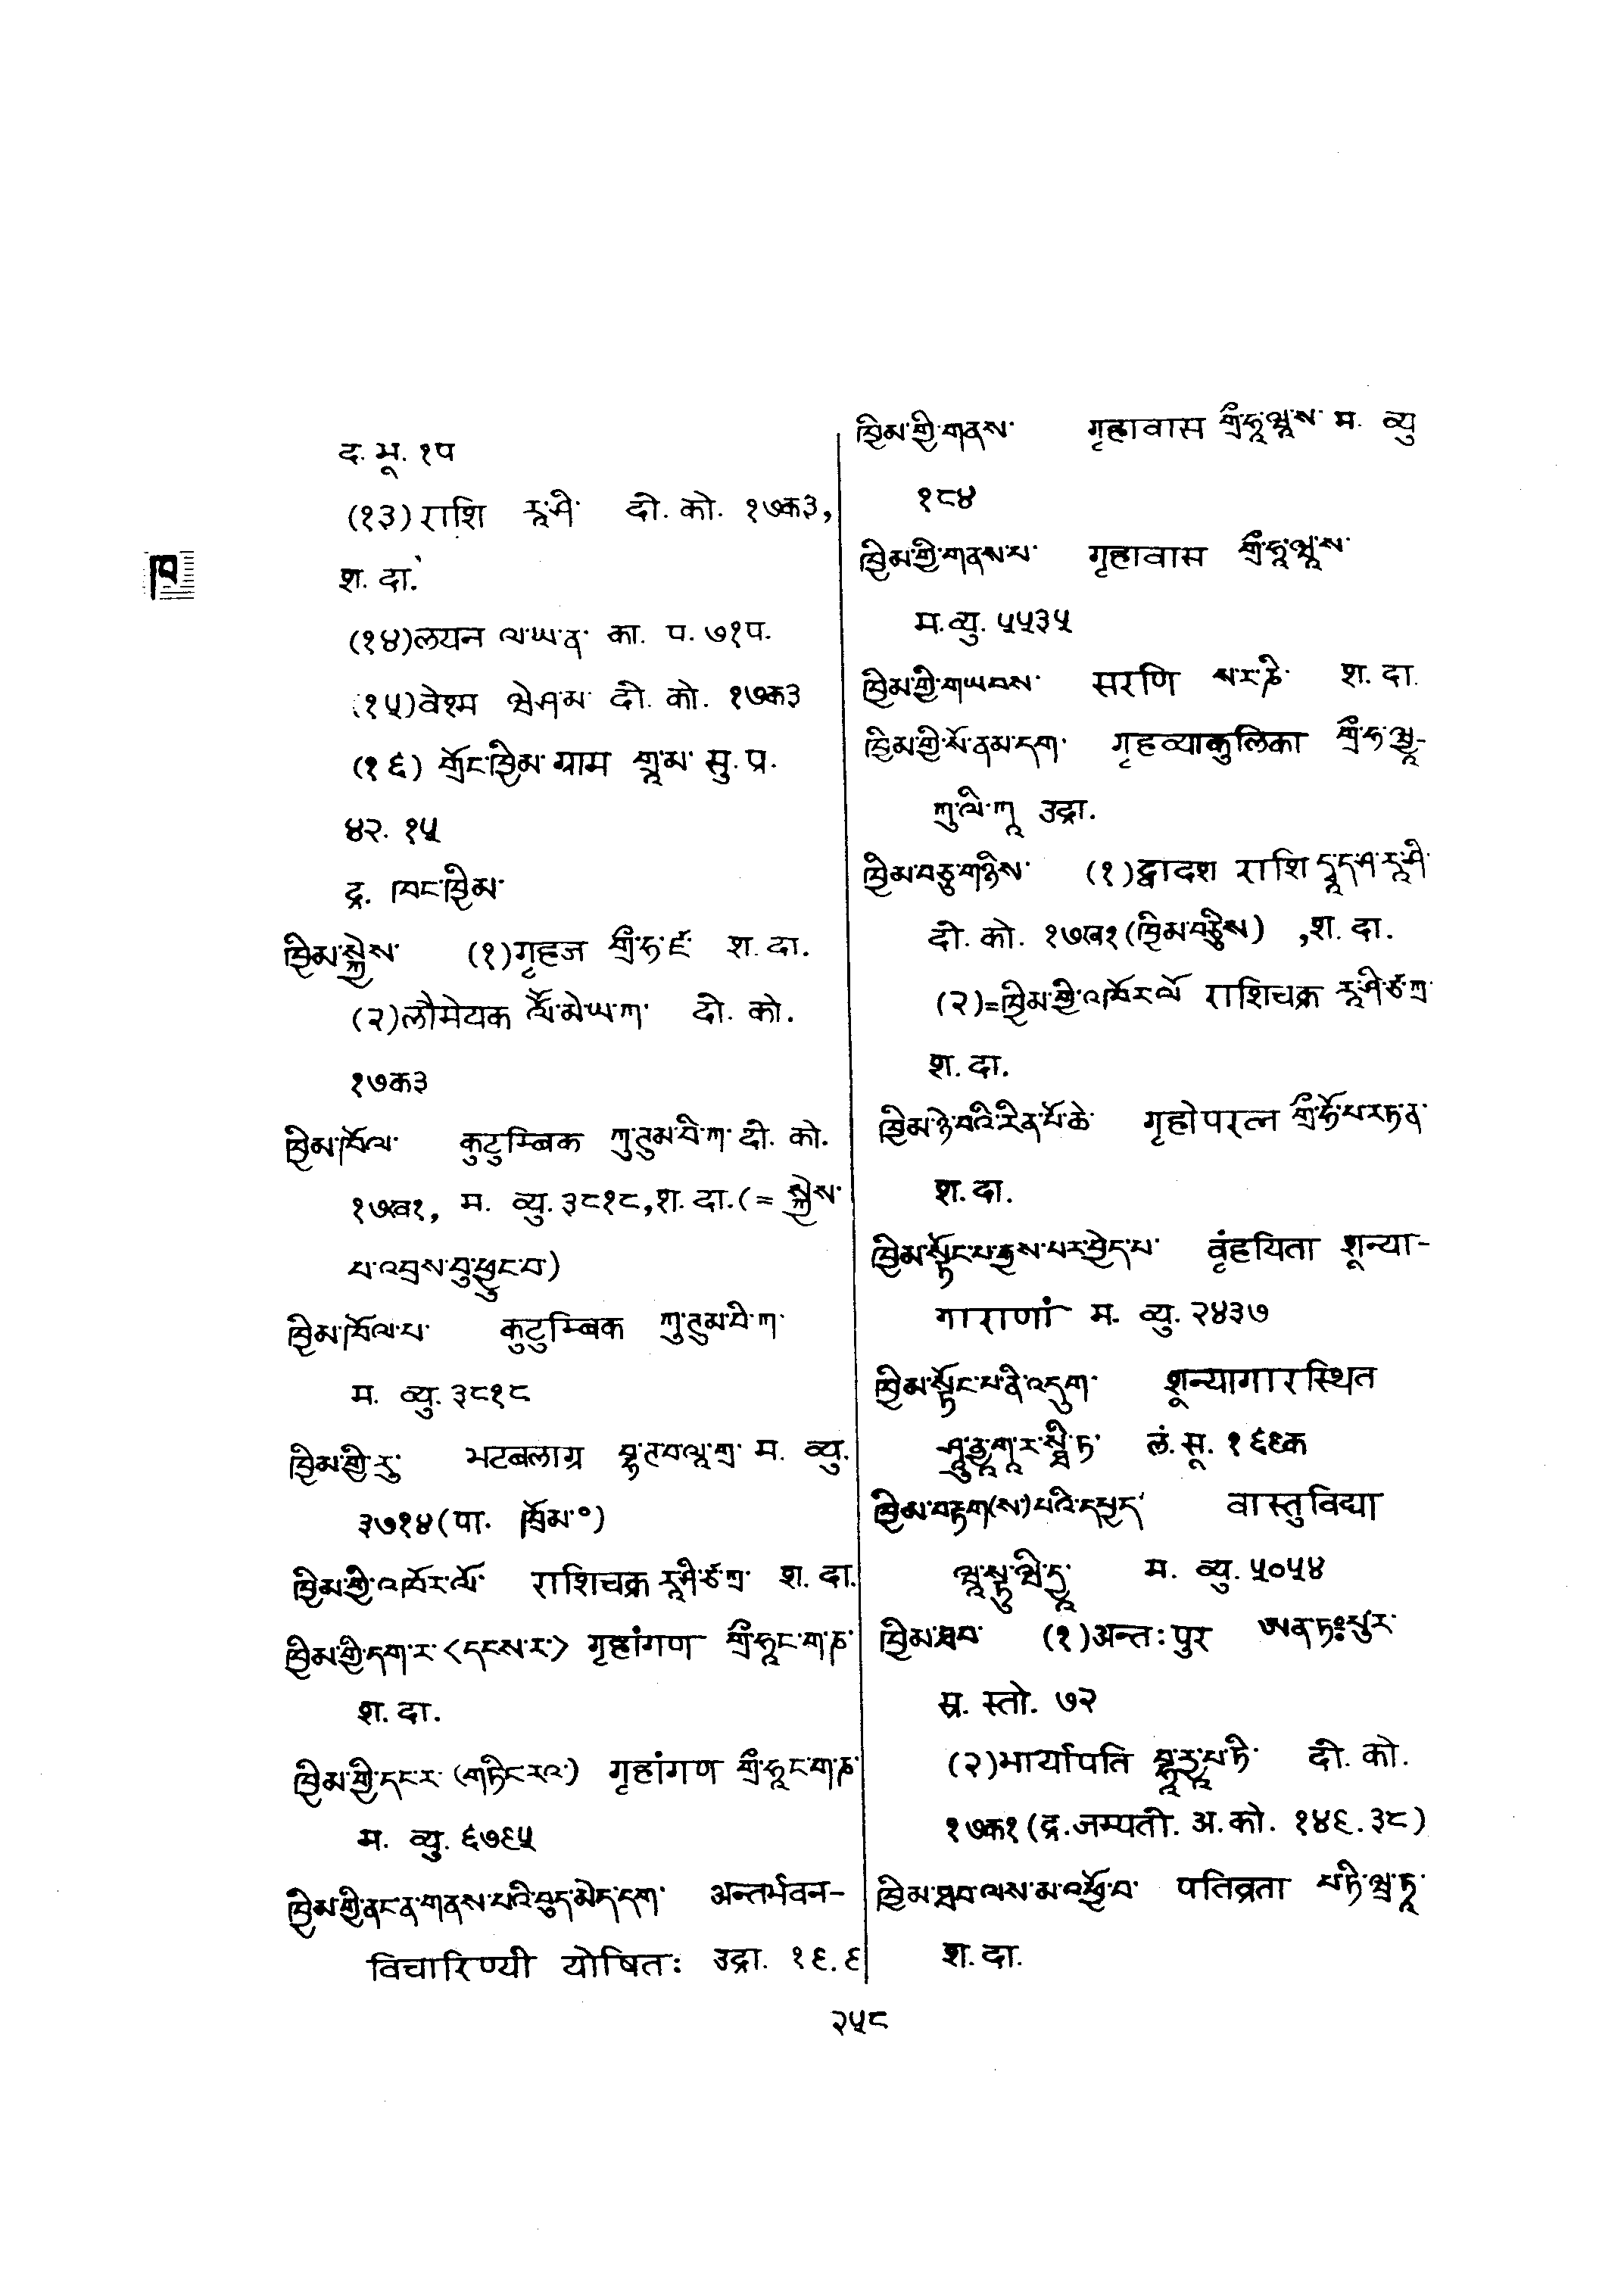 ཁ
द. भू. १प
(१३) राशि རཱ་ཤི་ दी. को. १७क३,
श. दा.
(१४)लयन ལ་ཡ་ན་ का. प. ७१प.
(१५)वेश्म ཝེ་ཤ་མ་ दी. को. १७क३
(१६) གྲོང་ཁྱིམ་ ग्राम གྲཱ་མ་ सु. प्र.
४२. १५
द्र. ཁང་ཁྱིམ་
ཁྱིམ་སྐྱེས་ (१)गृहज གྲྀ་ཧ་ཛ་ श. दा.
(२)लौमेयक ལཽ་མེ་ཡ་ཀ་ दी. को.
१७क३
ཁྱིམ་ཁོལ་ कुटुम्बिक ཀུ་ཊུམ་བི་ཀ་ दी. को.
१७ख१, म. व्यु. ३८१८, श. दा. (= སྐྱེས་
པ་འབྲས་བུ་ཕྱུང་བ་)
ཁྱིམ་ཁོལ་པ་ कुटुम्बिक ཀུ་ཊུམ་བི་ཀ་
म. व्यु. ३८१८
ཁྱིམ་གྱི་རུ་ भटबलाग्र བྷ་ཊ་བ་ལཱ་གྲ་ म. व्यु.
३७१४ (पा. ཁྲོམ་°)
ཁྱིམ་གྱི་འཁོར་ལོ་ राशिचक्र རཱ་ཤི་ཙ་ཀྲ་ श. दा.
ཁྱིམ་གྱི་དག་ར་ <དངས་ར་> गृहांगण གྲྀ་ཧཱང་ག་ཎ་
श. दा.
ཁྱིམ་གྱི་དང་ར་ (གཏིང་རའ་) गृहांगण གྲྀ་ཧཱང་ག་ཎ་
म. व्यु. ६७९५
ཁྱིམ་གྱི་ནང་ན་གནས་པའི་བུད་མེད་དག་ अन्तर्भवन-
विचारिण्यी योषितः उद्रा. १९.९
ཁྱིམ་གྱི་གནས་ गृहावास གྲྀ་ཧཱ་ཝཱ་ས་ म. व्यु
१८४
ཁྱིམ་གྱི་གནས་པ་ गृहावास གྲྀ་ཧཱ་ཝཱ་ས་
म. व्यु. ५५३५
ཁྱིམ་གྱི་གཡབས་ सरणि ས་ར་ཎི་ श. दा.
ཁྱིམ་གྱི་སོ་ནམ་དག་ गृहव्याकुलिका གྲྀ་ཧ་ཝྱཱ-
ཀུ་ལི་ཀཱ उद्रा.
ཁྱིམ་བཅུ་གཉིས་ (१)द्वादश राशि དྭཱ་ད་ཤ་རཱ་ཤི་
दी. को. १७ख१ (ཁྱིམ་བཅིུས) , श. दा.
(२)=ཁྱིམ་གྱི་འཁོར་ལོ राशिचक्र རཱ་ཤི་ཙ་ཀྲ་
श. दा.
ཁྱིམ་ཉེ་བའི་རིན་པོ་ཆེ་ गृहोपरत्न གྲྀ་ཧོ་པ་རཏ་ན་
श. दा.
ཁྱིམ་སྟོང་པ་རྒྱས་པར་བྱེད་པ་ वृंहयिता शून्या-
गाराणां म. व्यु. २४३७
ཁྱིམ་སྟོང་པ་ནི་འདུག་ शून्यागारस्थित
ཤཱུ་ནྱཱ་གཱ་ར་སྠི་ཏ་ लं. सू. १६९क
ཁྱིམ་བརྟག(ས་)པའི་དཔྱད་ वास्तुविद्या
ཝཱ་སྟུ་ཝི་དྱཱ་ म. व्यु. ५०५४
ཁྱིམ་ཐབ་ (१)अन्तःपुर ཨན་ཏཿ་པུ་ར་
स्र. स्तो. ७२
(२)भार्यापति བྷཱ་རྱཱ་པ་ཏི་ दी. को.
१७क१ (द्र. जम्पती. अ. को. १४९.३८)
ཁྱིམ་ཐབ་ལས་མ་འཕྱོ་བ་ पतिव्रता པ་ཏི་ཝྲ་ཏཱ་
श. दा.
२५८